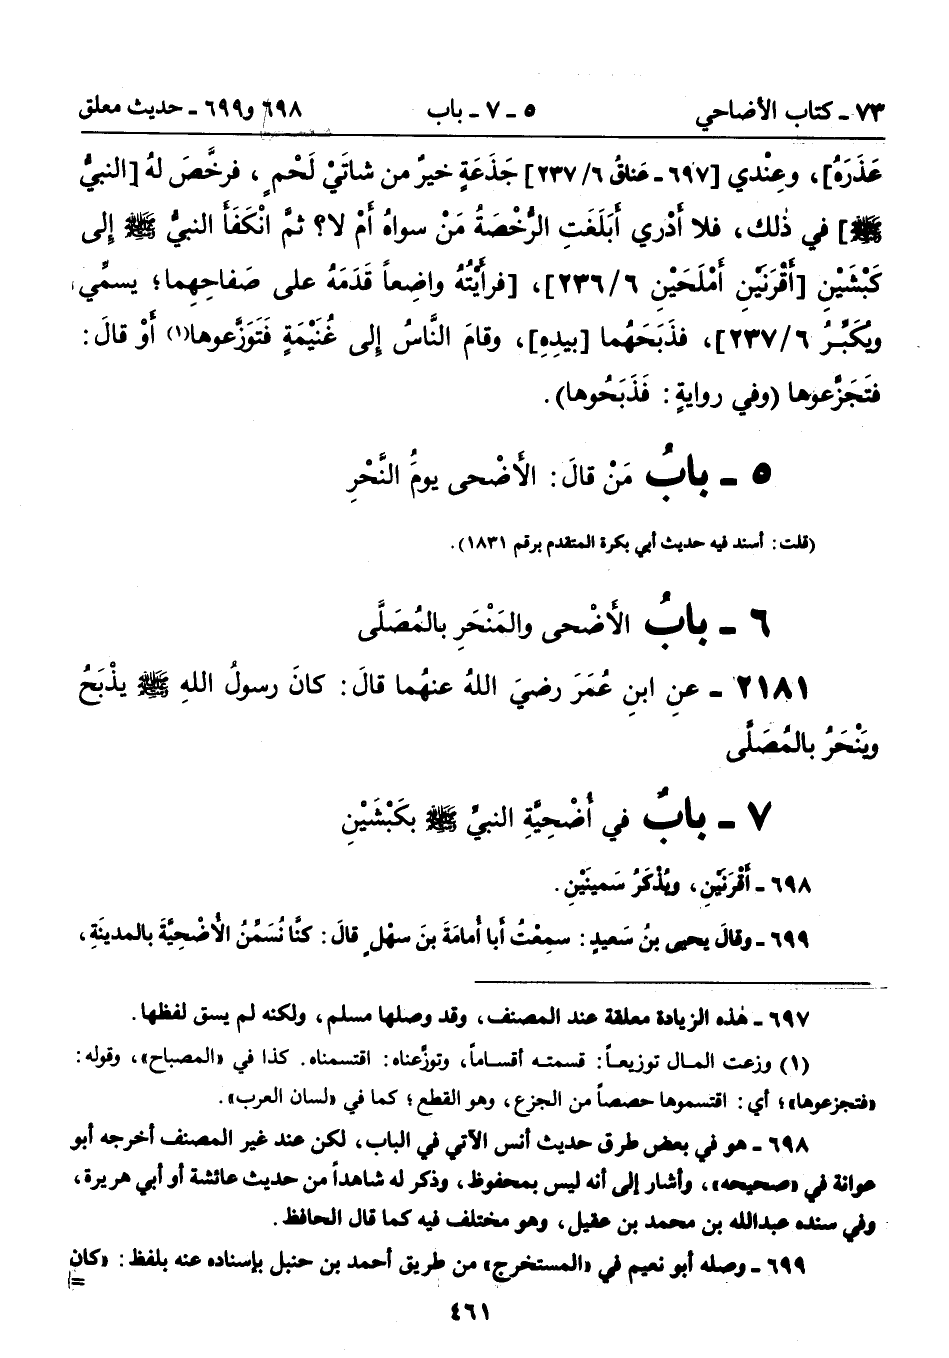 ٧٣ - كتاب الأضاحي ٥ - ٧ - باب ٦٩٨ و٦٩٩ - حديث معلق
عَذَرَهُ]، وعِنْدي [٦٩٧ - عَناقُ ٦/ ٢٣٧] جَذَعَةٍ خيرٌ من شاتَيْ لَحْمٍ، فرخَّصَ لهُ [النبيُّ
ﷺ] في ذٰلك، فلا أَدْري أَبَلَغَتِ الرُّخْصَةُ مَنْ سواهُ أَمْ لا؟ ثمَّ انْكَفَأَ النبيُّ ﷺ إلى
كَبْشَيْنِ [أَقْرَنَيْنِ أَمْلَحَيْنِ ٦/ ٢٣٦]، [فرأَيْتُهُ واضِعاً قَدَمَهُ على صَفاحِهِما؛ يسمِّي
ويُكَبِّرُ ٦/ ٢٣٧]، فذَبَحَهُما [بيدِهِ]، وقامَ النَّاسُ إلى غُنَيْمَةٍ فَتَوَزَّعوها(١) أَوْ قالَ:
فتَجَزَّعوها (وفي روايةٍ: فَذَبَحُوها).
٥ - بابُ مَنْ قالَ: الأَضْحى يومُ النَّحْرِ
(قلت: أسند فيه حديث أبي بكرة المتقدم برقم ١٨٣١).
٦ - بابُ الأَضْحى والمَنْحَرِ بالمُصَلَّى
٢١٨١ - عنِ ابنِ عُمَرَ رضيَ اللهُ عنهُما قالَ: كانَ رسولُ اللهِ ﷺ يذْبَحُ
ويَنْحَرُ بالمُصَلَّى
٧ - بابٌ في أُضْحِيَّةِ النبيِّ ﷺ بكَبْشَيْنِ
٦٩٨ - أَقْرَنَيْنِ، ويُذْكَرُ سَمينَيْنِ.
٦٩٩ - وقالَ يحيى بنُ سَعيدٍ: سمِعْتُ أَبا أُمامَةَ بنَ سهْلٍ قالَ: كنَّا نُسَمِّنُ الأُضْحِيَّةَ بالمدينَةِ،
٦٩٧ - هٰذه الزيادة معلقة عند المصنف، وقد وصلها مسلم، ولكنه لم يسق لفظها.
(١) وزعت المال توزيعاً: قسمته أقساماً، وتوزَّعناه: اقتسمناه. كذا في «المصباح»، وقوله:
«فتجزعوها»؛ أي: اقتسموها حصصاً من الجزع، وهو القطع؛ كما في «لسان العرب».
٦٩٨ - هو في بعض طرق حديث أنس الآتي في الباب، لكن عند غير المصنف أخرجه أبو
عوانة في «صحيحه»، وأشار إلى أنه ليس بمحفوظ، وذكر له شاهداً من حديث عائشة أو أبي هريرة،
وفي سنده عبدالله بن محمد بن عقيل، وهو مختلف فيه كما قال الحافظ.
٦٩٩ - وصله أبو نعيم في «المستخرج» من طريق أحمد بن حنبل بإسناده عنه بلفظ: «كان
=
٤٦١